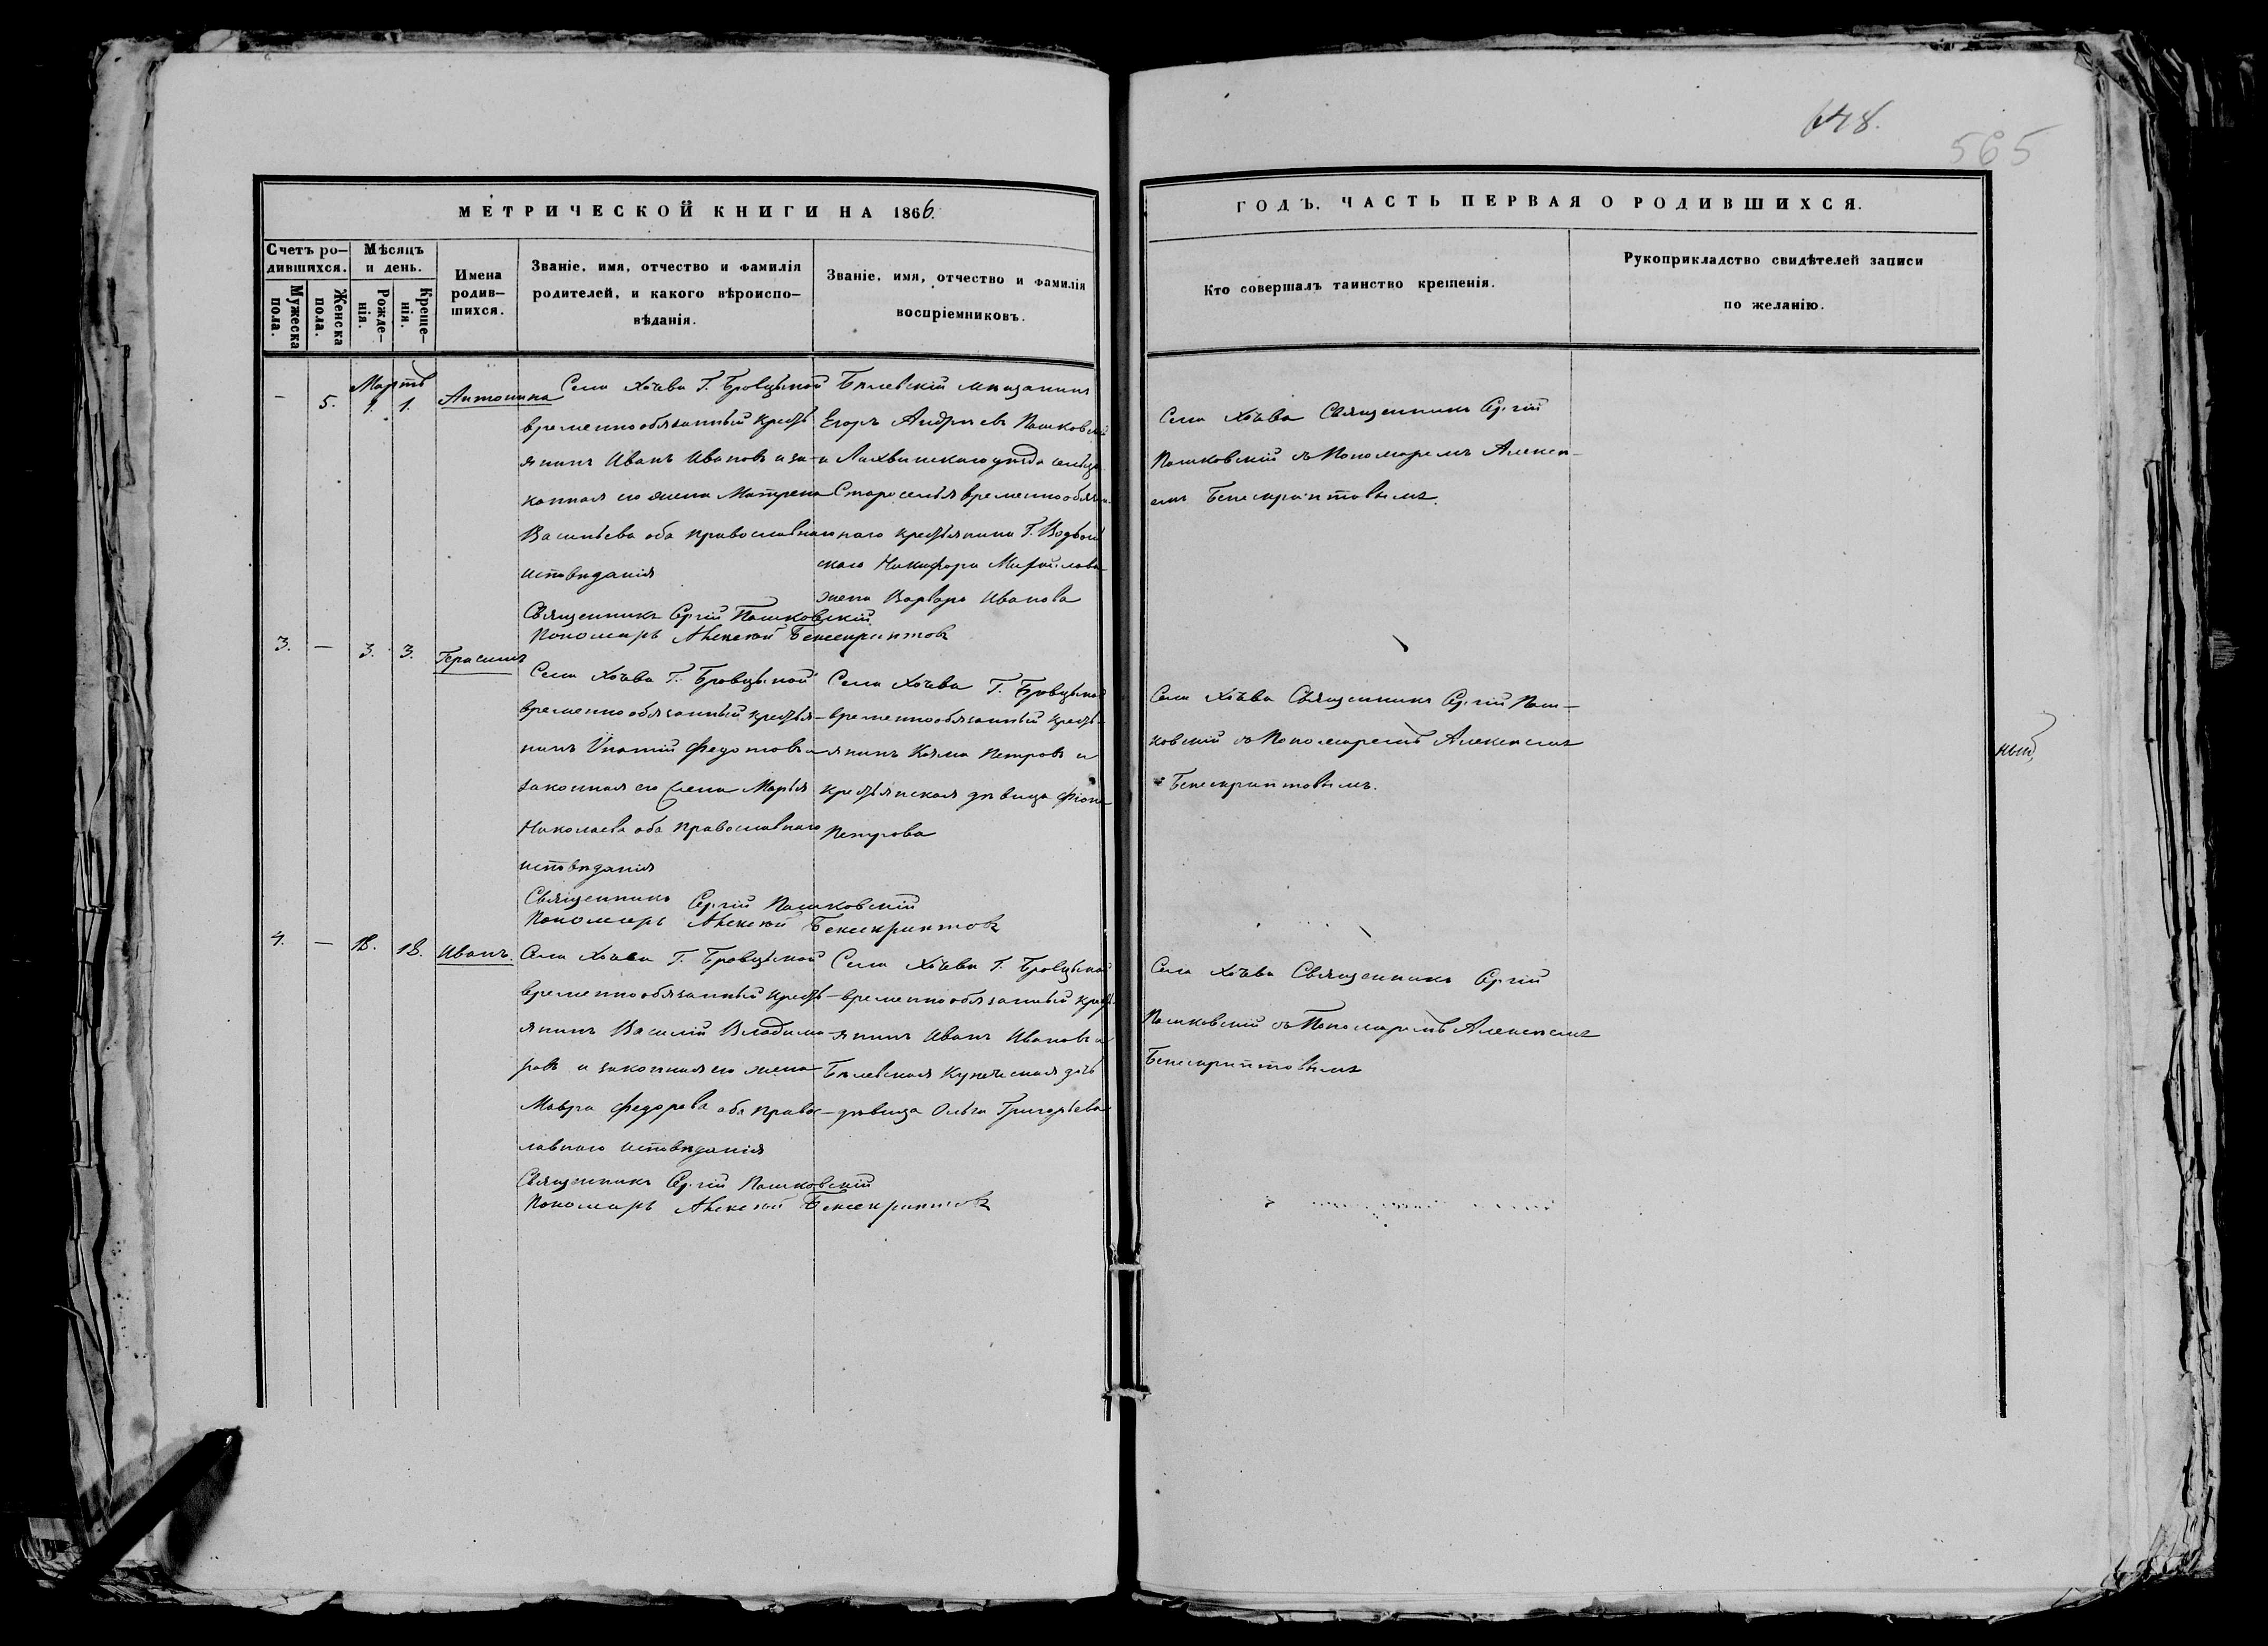 648.
565
МЕТРИЧЕСКОЙ КНИГИ НА 1866.
ГОДЪ. ЧАСТЬ ПЕРВАЯ О РОДИВШИХСЯ.
Счетъ ро-
дившихся.
Мужеска
пола.
Женска
пола.
Мѣсяцъ
и день.
Рожде-
нія.
Креще-
нія.
Имена
родив-
шихся.
Званіе, имя, отчество и фамилія
родителей, и какого вѣроиспо-
вѣданія.
Званіе, имя, отчество и фамилія
воспріемниковъ.
Кто совершалъ таинство крещенія.
Рукоприкладство свидѣтелей записи
по желанію.
Мартъ
- 5. 1. 1. Антонина
Села Хотьва Г. Бровцыной
временнообязанный кресть
янинъ Иванъ Ивановъ и за-
конная его жена Матрена
Васильева оба православнаго
исповѣданія
Священникъ Сергій Пашковскій
Пономарь Алексѣй Бенескриптовъ
Бѣлевскій мѣщанинъ
Егоръ Андреевъ Пашковскій
и Лихвинскаго уѣзда сельца
Староселья временнообязан-
наго крестьянина Г.
скаго Никифора Михайлова
жена Варвара Иванова
Села Хотьва Священникъ Сергій
Пашковскій съ Пономаремъ Алексѣ-
емъ Бенескриптовымъ.
3. — 3. 3. Герасимъ
Села Хотьва Г. Бровцыной
временнообязанный крестья-
нинъ Ипатій Федотовъ и
законная его жена Марья
Николаева оба православнаго
исповѣданія
Священникъ Сергій Пашковскій
Пономарь Алексѣй Бенескриптовъ
Села Хотьва Г. Бровцыной
временнообязанный кресть-
янинъ Козма Петровъ и
крестьянская дѣвица
Петрова
Села Хотьва Священникъ Сергій Паш-
ковскій съ Пономаремъ Алексѣемъ
Бенескриптовымъ.
ный,
4. — 18. 18. Иванъ.
Села Хотьва Г. Бровцыной
временнообязанный кресть-
янинъ Василій Владими-
ровъ и законная его жена
Мавра Федорова оба правос-
лавнаго исповѣданія
Священникъ Сергій Пашковскій
Пономарь Алексѣй Бенескриптовъ
Села Хотьва Г. Бровцыной
временнообязанный кресть-
янинъ Иванъ Ивановъ и
Бѣлевская Купеческая дочь
дѣвица Ольга Григорьева
Села Хотьва Священникъ Сергій
Пашковскій съ Пономаремъ Алексѣемъ
Бенескриптовымъ